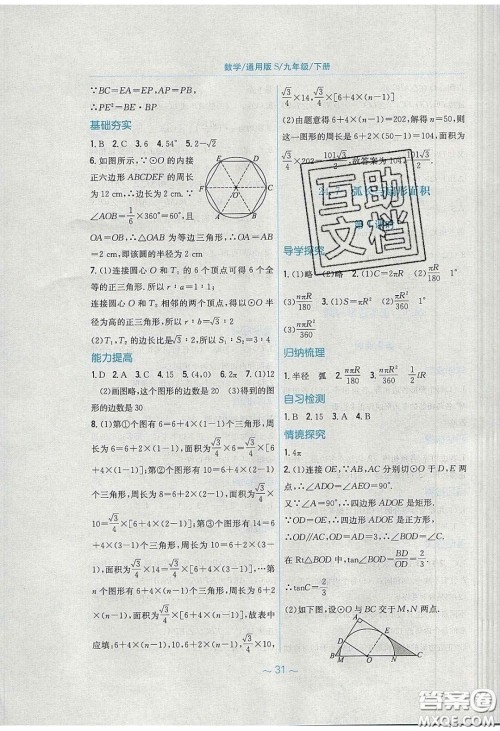 数学/通用版 S/九年级/下册
∵BC=EA=EP,AP=PB,
∴PE²=BE·BP
基础夯实
1. B 2. C 3. 6 4. 54° 5. 2-√2
6. 如图所示,∵⊙O 的内接
正六边形 ABCDEF 的周长
为 12 cm,∴边长为 2 cm,∵
∠AOB=1/6×360°=60°,且
OA=OB,∴△OAB 为等边三角形,∴OA=AB
=2 cm,即该圆的半径为 2 cm
7. (1)连接圆心 O 和 T₁ 的 6 个顶点可得 6 个全
等的正三角形.所以 r∶a=1∶1;
连接圆心 O 和 T₂ 相邻的两个顶点,得以⊙O 半径
为高的正三角形,所以 r∶b=√3∶2
(2)T₁,T₂ 的边长比是√3∶2,所以 S₁∶S₂=3∶4
能力提高
1. D 2. A 3. C 4. 15 5. (4,0) 6. 2π 7. (1)12
(2)画图略,这个图形的边数是 20 (3)得到的图
形的边数是 30
8. (1)第①个图有 6=6+4×(1-1)个三角形,周长
为 8=6+2×(1-1),面积为 6×√3/4=√3/4×[6+4
×(1-1)];第②个图形有 10=6+4×(2-1)个三
角形,周长为 8=6+2×(2-1),面积为 10×√3/4
=√3/4×[6+4×(2-1)];第③个图形有 14=6+
4×(3-1)个三角形,周长为 10=6+2×(3-1),
面积为 14×√3/4=√3/4×[6+4×(3-1)];…第
n 个图形有 6+4×(n-1)个三角形,周长为 6+2
×(n-1),面积为√3/4×[6+4×(n-1)],故表中
应填:6+4×(n-1),10,6+2×(n-1),
√3/4×14,√3/4×[6+4×(n-1)]
(2)由题意得 6+4×(n-1)=202,解得 n=50,则
这一图形的周长是 6+2×(50-1)=104,面积为
√3/4×202=101√3/2,故答案为 104,101√3/2
互助
文档
导学探究
1. (1)略 (2)略 2. (1)C=2πR (2)πR/180 1°
(3)nπR/180 3. (1)S=πR² (2)πR²/360 1°
(3)nπR²/360
归纳梳理
1. 半径 弧 2. nπR/180 3. nπR²/360 1/2 lR
自习检测
1. B 2. 15 3. A 4. B
情境探究
1. 4π
2. (1)连接 OE,∵AB,AC 分别切⊙O 于 D,E 两
点,∴∠ADO=∠AEO=90°.
又∵∠A=90°,∴四边形 ADOE 是矩形.
∵OD=OE,∴四边形 ADOE 是正方形,
∴OD∥AC,OD=AD=3,∴∠BOD=∠C,
∴在 Rt△BOD 中,tan∠BOD=BD/OD=2/3,
∴tanC=2/3
(2)如下图,设⊙O 与 BC 交于 M,N 两点.
A
E
D
B M O N C
～31～
答案圈
MXQE.COM